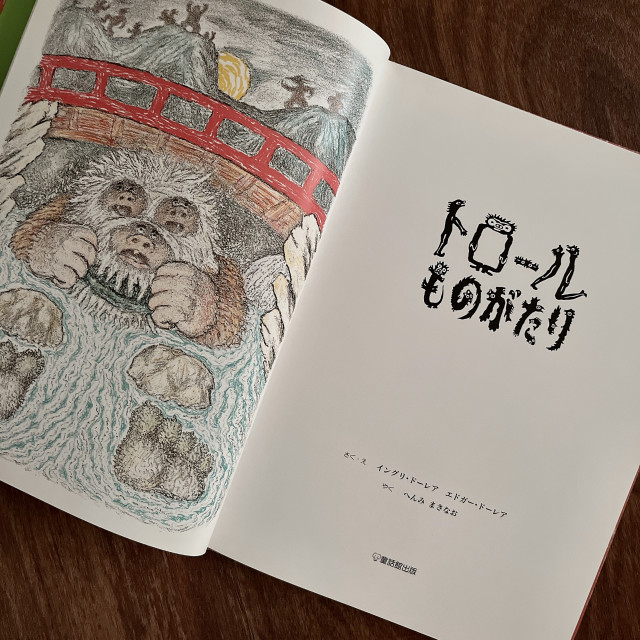 トロール
ものがたり
さく・え イングリ・ドーレア エドガー・ドーレア
やく へんみ まさなお
童話館出版